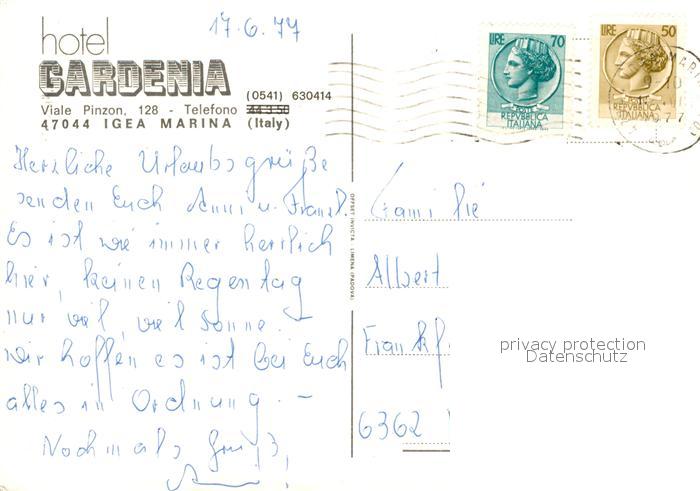 17.6.77
hotel
GARDENIA
(0541) 630414
Viale Pinzon, 128 - Telefono 44 3 50
47044 IGEA MARINA (Italy)
Herzliche Urlaubsgrüße
senden Euch Anni u. Franz.
Es ist wie immer herrlich
hier, keinen Regentag
nur viel, viel Sonne. -
wir hoffen es ist bei Euch
alles in Ordnung. -
Nochmals Gruß
OFFSET INVICTA LIMENA (PADOVA)
LIRE 70
REPVBBLICA
ITALIANA
LIRE 50
REPVBBLICA
ITALIANA
Familie
Albert
Frankf
6362
privacy protection
Datenschutz